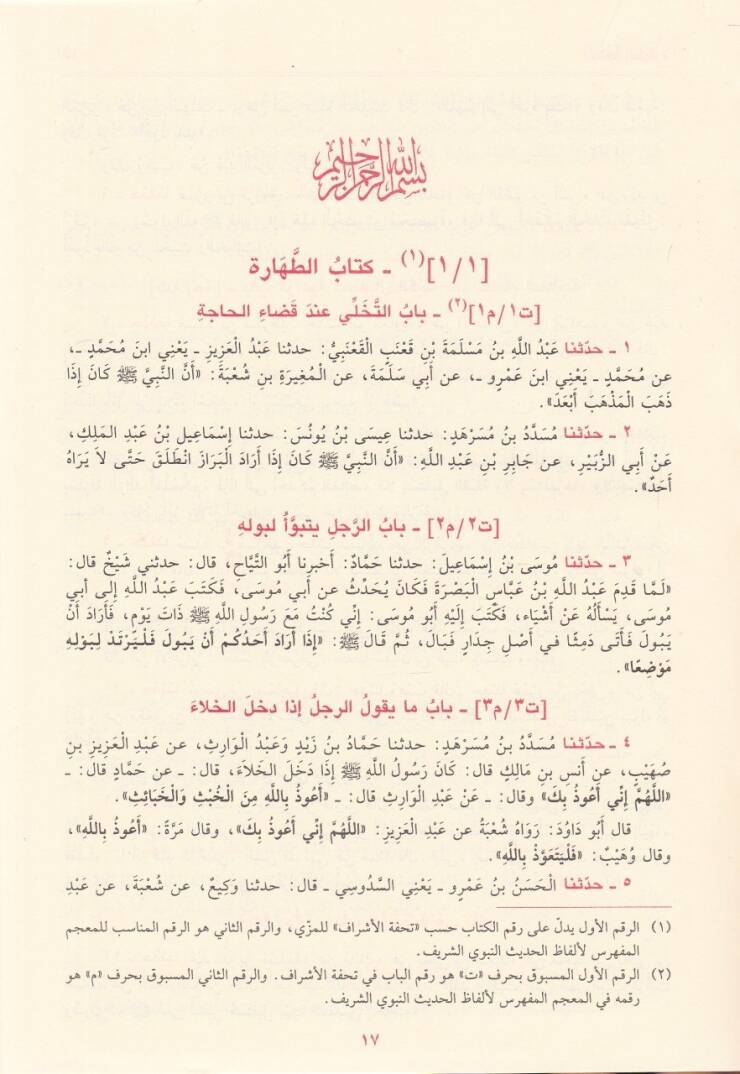 بسم الله الرحمن الرحيم
[١/١](١) ـ كتابُ الطَّهَارة
[ت١/م١](٢) ـ بابُ التَّخَلِّي عندَ قَضاءِ الحاجةِ
١ ـ حدّثنا عَبْدُ اللَّهِ بنُ مَسْلَمَةَ بْنِ قَعْنَبٍ الْقَعْنَبِيُّ: حدثنا عَبْدُ الْعَزِيزِ ـ يَعْنِي ابنَ مُحَمَّدٍ ـ،
عن مُحَمَّدٍ ـ يَعْنِي ابنَ عَمْرٍو ـ، عن أَبِي سَلَمَةَ، عن الْمُغِيرَةِ بنِ شُعْبَةَ: «أَنَّ النَّبِيَّ ﷺ كَانَ إِذَا
ذَهَبَ الْمَذْهَبَ أَبْعَدَ».
٢ ـ حدّثنا مُسَدَّدُ بنُ مُسَرْهَدٍ: حدثنا عِيسَى بْنُ يُونُسَ: حدثنا إِسْمَاعِيل بْنُ عَبْدِ الْمَلِكِ،
عَنْ أَبِي الزُّبَيْرِ، عن جَابِرِ بْنِ عَبْدِ اللَّهِ: «أَنَّ النَّبِيَّ ﷺ كَانَ إِذَا أَرَادَ الْبَرَازَ انْطَلَقَ حَتَّى لَا يَرَاهُ
أَحَدٌ».
[ت٢/م٢] ـ بابُ الرَّجلِ يتبوَّأُ لبولهِ
٣ ـ حدّثنا مُوسَى بْنُ إِسْمَاعِيلَ: حدثنا حَمَّادٌ: أخبرنا أَبُو التَّيَّاحِ، قال: حدثني شَيْخٌ قال:
«لَـمَّا قَدِمَ عَبْدُ اللَّهِ بْنُ عَبَّاسٍ الْبَصْرَةَ فَكَانَ يُحَدِّثُ عن أبي مُوسَى، فَكَتَبَ عَبْدُ اللَّهِ إلى أبي
مُوسَى، يَسْأَلُهُ عَنْ أَشْيَاء، فَكَتَبَ إِلَيْهِ أَبُو مُوسَى: إِنِّي كُنْتُ مَعَ رَسُولِ اللَّهِ ﷺ ذَاتَ يَوْمٍ، فَأَرَادَ أَنْ
يَبُولَ فَأَتَى دَمِثًا في أَصْلِ جِدَارٍ فَبَالَ، ثُمَّ قَالَ ﷺ: «إِذَا أَرَادَ أَحَدُكُمْ أَنْ يَبُولَ فَلْيَرْتَدْ لِبَوْلِهِ
مَوْضِعًا».
[ت٣/م٣] ـ بابُ ما يقولُ الرجلُ إذا دخلَ الخلاءَ
٤ ـ حدّثنا مُسَدَّدُ بنُ مُسَرْهَدٍ: حدثنا حَمَّادُ بنُ زَيْدٍ وَعَبْدُ الْوَارِثِ، عن عَبْدِ الْعَزِيزِ بنِ
صُهَيْبٍ، عن أَنَسِ بنِ مَالِكٍ قال: كَانَ رَسُولُ اللَّهِ ﷺ إِذَا دَخَلَ الْخَلَاءَ، قال: ـ عن حَمَّادٍ قال: ـ
«اللَّهُمَّ إِنِّي أَعُوذُ بِكَ» وقال: ـ عَنْ عَبْدِ الْوَارِثِ قال: ـ «أَعُوذُ بِاللَّهِ مِنَ الْخُبُثِ وَالْخَبَائِثِ».
قال أَبُو دَاوُدَ: رَوَاهُ شُعْبَةُ عن عَبْدِ الْعَزِيزِ: «اللَّهُمَّ إِنِّي أَعُوذُ بِكَ»، وقال مَرَّةً: «أَعُوذُ بِاللَّهِ»،
وقال وُهَيْبٌ: «فَلْيَتَعَوَّذْ بِاللَّهِ».
٥ ـ حدّثنا الْحَسَنُ بنُ عَمْرٍو ـ يَعْنِي السَّدُوسِي ـ قال: حدثنا وَكِيعٌ، عن شُعْبَةَ، عن عَبْدِ
(١) الرقم الأول يدلّ على رقم الكتاب حسب «تحفة الأشراف» للمزّي، والرقم الثاني هو الرقم المناسب للمعجم
المفهرس لألفاظ الحديث النبوي الشريف.
(٢) الرقم الأول المسبوق بحرف «ت» هو رقم الباب في تحفة الأشراف. والرقم الثاني المسبوق بحرف «م» هو
رقمه في المعجم المفهرس لألفاظ الحديث النبوي الشريف.
١٧